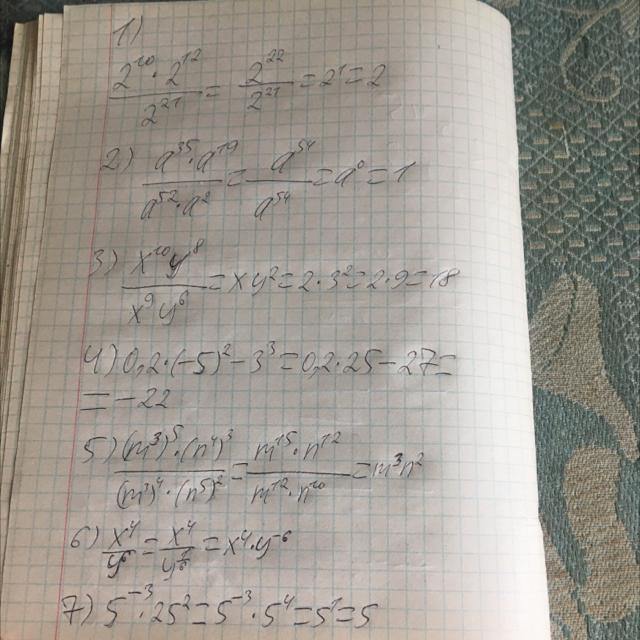 1)
2^10 · 2^12 / 2^21 = 2^22 / 2^21 = 2^1 = 2
2) a^35 · a^19 / a^52 · a^2 = a^54 / a^54 = a^0 = 1
3) x^10 y^8 / x^9 y^6 = xy^2 = 2 · 3^2 = 2 · 9 = 18
4) 0,2 · (-5)^2 - 3^3 = 0,2 · 25 - 27 =
= -22
5) (m^3)^5 · (n^4)^3 / (m^3)^4 · (n^5)^2 = m^15 · n^12 / m^12 · n^10 = m^3 n^2
6) x^4 / y^6 = x^4 / y^6 = x^4 · y^-6
7) 5^-3 · 25^2 = 5^-3 · 5^4 = 5^1 = 5